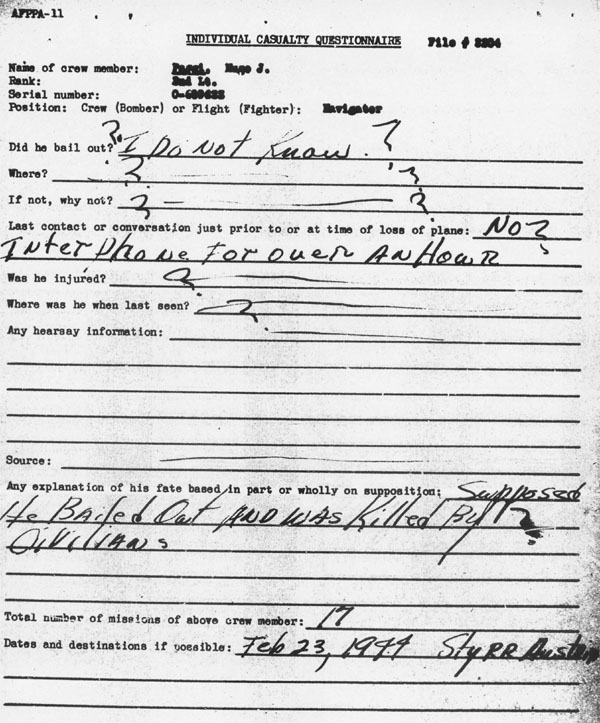 AFPPA-11
INDIVIDUAL CASUALTY QUESTIONNAIRE File # 3204
Name of crew member: Hugo J.
Rank: 2nd Lt.
Serial number:
Position: Crew (Bomber) or Flight (Fighter): Navigator
Did he bail out? ? I Do Not Know. ?
Where? ? ?
If not, why not? ? ?
Last contact or conversation just prior to or at time of loss of plane: No ?
InterPhone For over An Hour
Was he injured? ?
Where was he when last seen? ?
Any hearsay information:
Source:
Any explanation of his fate based in part or wholly on supposition: Supposed
He Bailed Out AND WAS Killed By ?
Civilians
Total number of missions of above crew member: 17
Dates and destinations if possible: Feb 23, 1944 Styrr